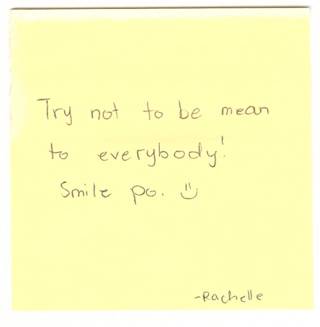 Try not to be mean
to everybody!
Smile po. :)
-Rachelle